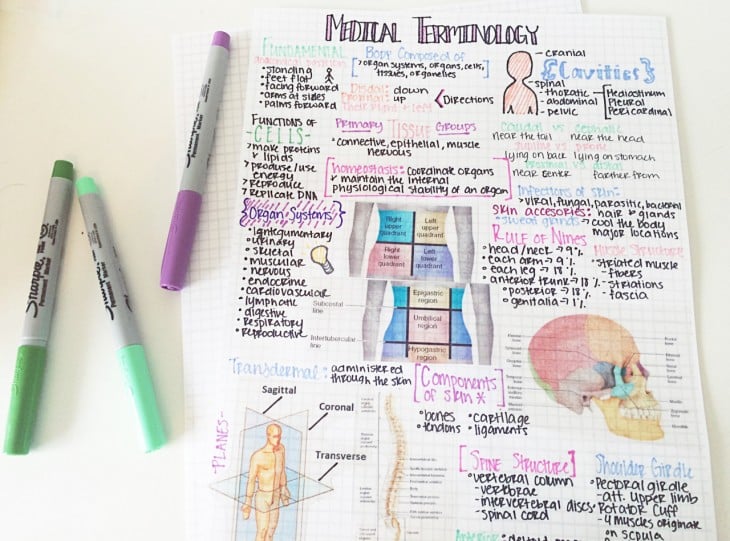 MEDICAL TERMINOLOGY
FUNDAMENTAL
anatomical position
• standing
• feet flat
• facing forward
• arms at sides
• palms forward
BODY COMPOSED OF
[> organ systems, organs, cells,
tissues, organelles]
Distal: down
Proximal: up
Directions
cranial
spinal
thoracic
abdominal
pelvic
{Cavities}
Mediastinum
Pleural
Pericardial
FUNCTIONS OF
-CELLS-
> make proteins
& lipids
> produse/use
energy
> Reproduce
> Replicate DNA
Primary Tissue Groups
• connective, epithelial, muscle
nervous
homeostasis: coordinate organs
& maintain the internal
physiological stability of an organ
caudal vs cephalic
near the tail near the head
supine vs prone
lying on back lying on stomach
proximal vs distal
near center farther from
Infections of skin:
> viral, fungal, parasitic, bacterial
skin accesories: hair & glands
sweat glands > cool the body
major locations
{Organ Systems}
• Integumentary
• urinary
• skeletal
• muscular
• nervous
• endocrine
• cardiovascular
• lymphatic
• digestive
• Respiratory
• Reproductive
Right
upper
quadrant
Left
upper
quadrant
Right
lower
quadrant
Left
lower
quadrant
Subcostal
line
Intertubercular
line
Epigastric
region
Umbilical
region
Hypogastric
region
RULE OF NINES
• head/neck → 9%
• each arm → 9%
• each leg → 18%
• anterior trunk → 18%
• posterior → 18%
• genitalia → 1%
Muscle Structure
• striated muscle
- fibers
- striations
- fascia
Transdermal: administered
through the skin
[Components
of skin *]
• bones • cartilage
• tendons • ligaments
-PLANES-
Sagittal
Coronal
Transverse
[SPINE STRUCTURE]
• vertebral column
- vertbrae
- intervertebral discs
- spinal cord
Shoulder Girdle
• Pectoral girdle
- att. upper limb
• Rotator Cuff
- 4 muscles originate
on scapula
Sharpie
Permanent Marker